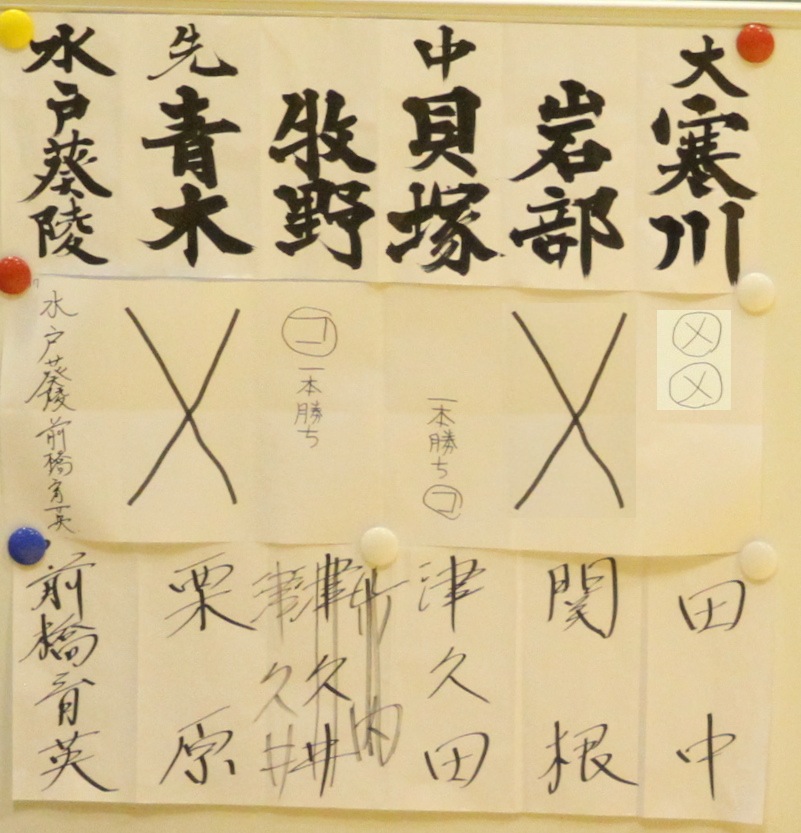 水戸葵陵
先 青木
牧野
中 貝塚
岩部
大 寒川
水戸葵陵 前橋育英
コ 一本勝ち
一本勝ち コ
メ
メ
前橋育英
栗原
津久井
津久井
津久田
関根
田中